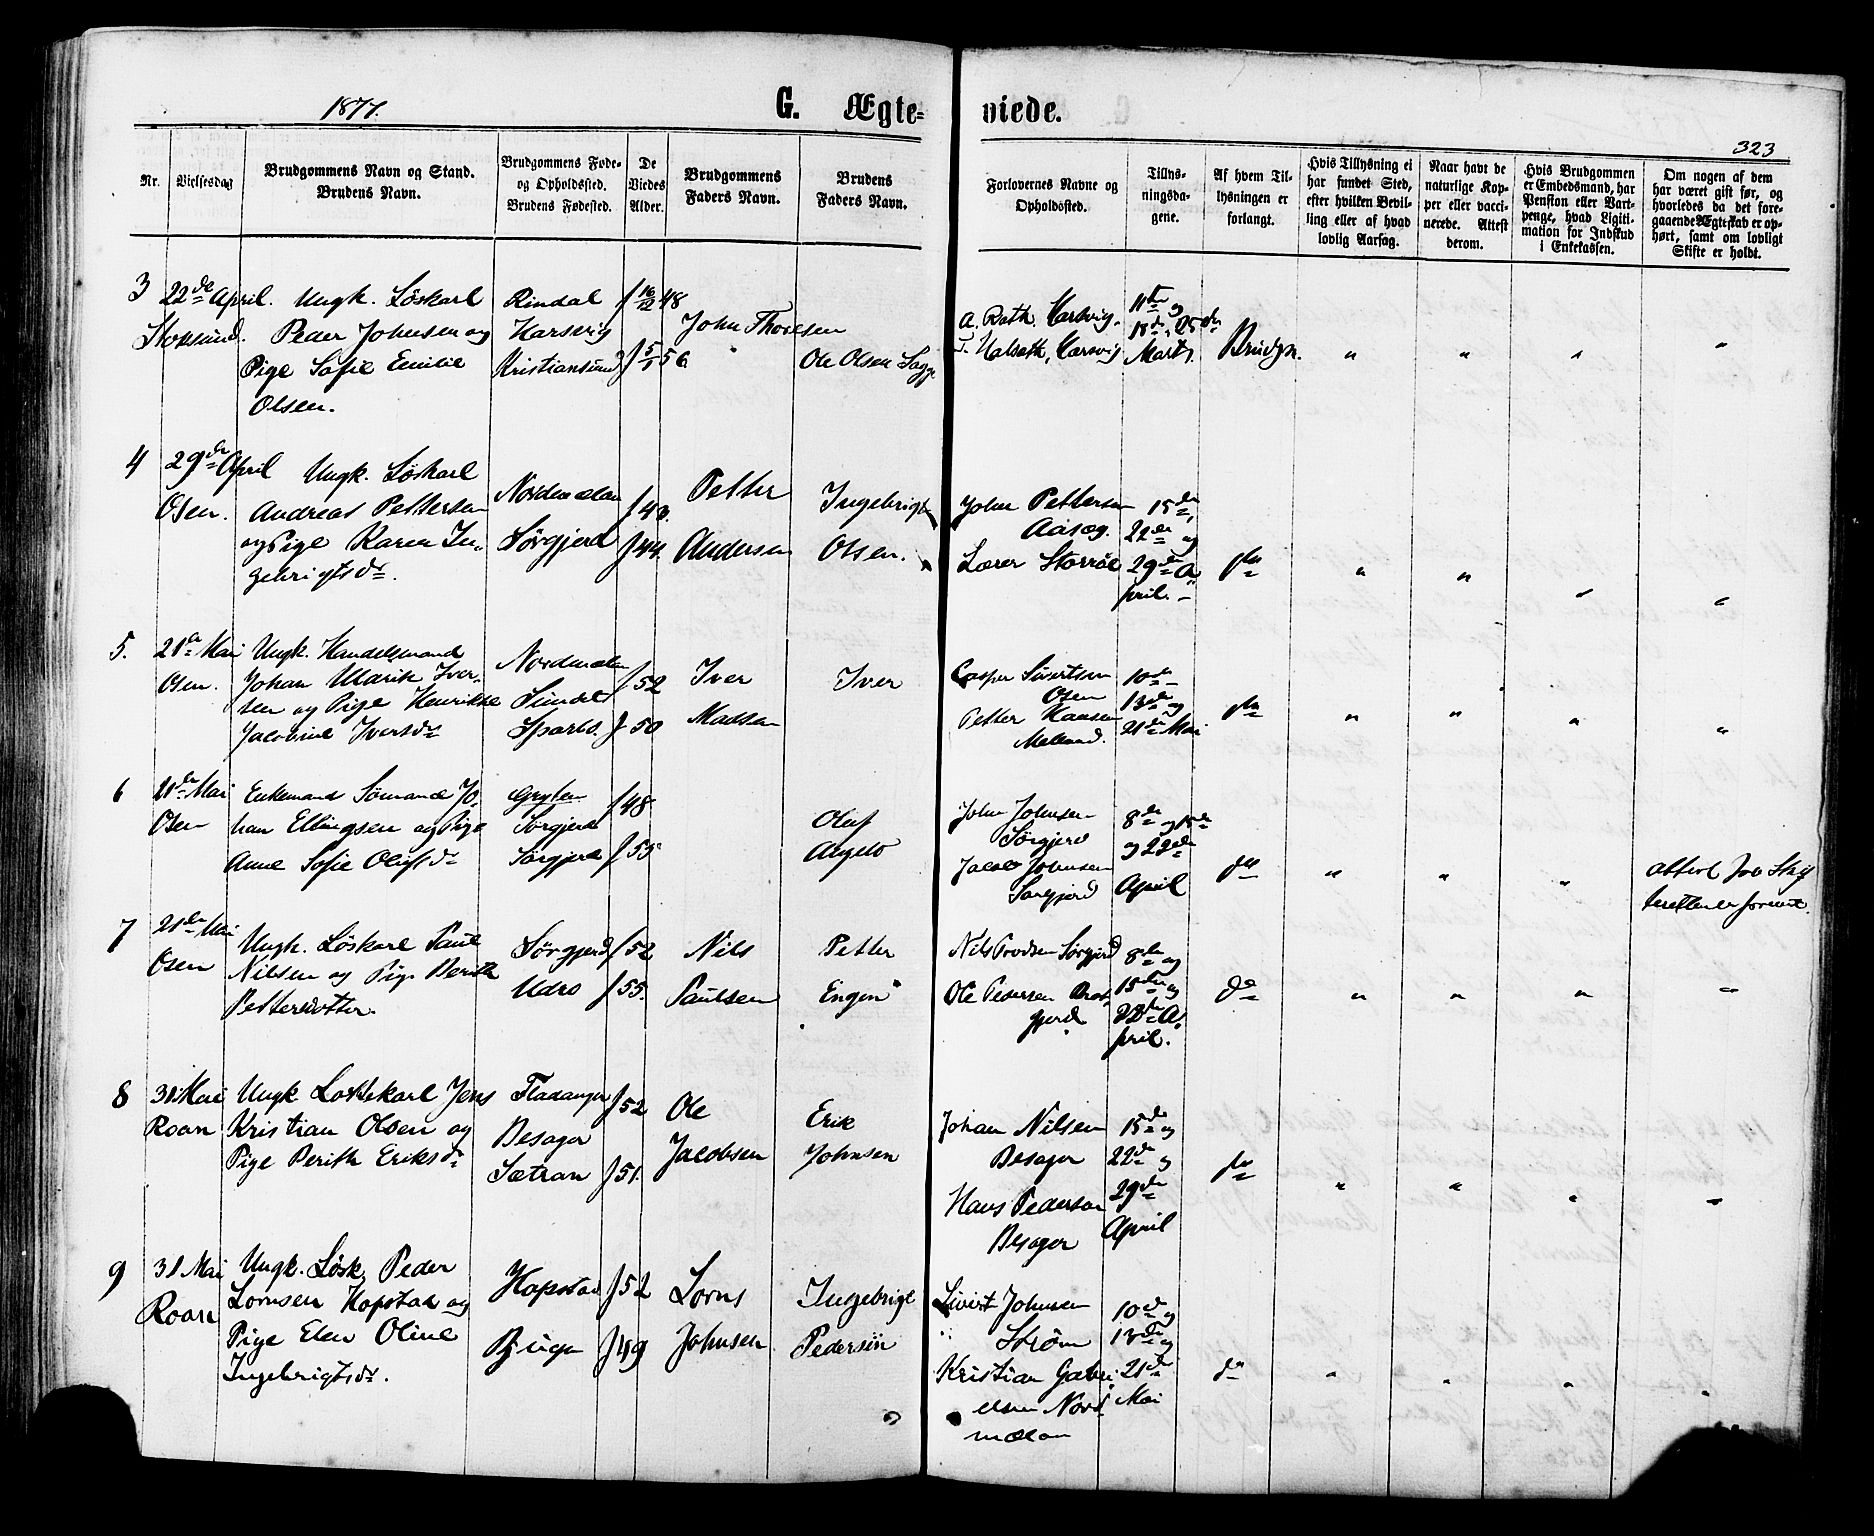 1877.
G. Ægte=
viede.
323
Nr.
Vielsesdag
Brudgommens Navn og Stand.
Brudens Navn.
Brudgommens Føde-
og Opholdssted.
Brudens Fødested.
De
Viedes
Alder.
Brudgommens
Faders Navn.
Brudens
Faders Navn.
Forlovernes Navne og
Opholdssted.
Tillys-
ningsda-
gene.
Af hvem Til-
lysningen er
forlangt.
Hvis Tillysning ei
har fundet Sted,
efter hvilken Bevil-
ling eller af hvad
lovlig Aarsag.
Naar havt de
naturlige Kop-
per eller vacci-
nerede. Attest
derom.
Hvis Brudgommen
er Embedsmand, har
Pension eller Vart-
penge, hvad Ligiti-
mation for Indskud
i Enkekassen.
Om nogen af dem
har været gift før, og
hvorledes da det fore-
gaaende Ægteskab er op-
hørt, samt om lovligt
Skifte er holdt.
3
22de April.
Stoksund.
Ungk. Løskarl
Peder Johnsen og
Pige Sofie Emilie
Olsen.
Rindal
Harsvig
Kristiansund
f 16/12 48
f 5/1 56
John Thoresen
Ole Olsen
A. Rath. Harsvig.
Harsvig
11te og
18de, 25de
Marts.
Brudgn.
" " " "
4
29de April
Osen.
Ungk. Løskarl
Andreas Pettersen
og Pige Karen In-
gebrigtsdr.
Nordmælan
Sørgjerd
f 43.
f 44.
Petter
Andersen
Ingebrigt
Olsen.
John Pettersen
Aasæg.
Lærer Storrøe
15de,
22de og
29de A-
pril.
do
" " " "
5.
21de Mai
Osen.
Ungk. Handelsmand
Johan Uldrik Iver-
sen og Pige Henrikke
Jacobine Iversdr
Nordmælan
Sundet
Sparbo.
f 52
f 50
Iver
Madsen
Iver
Casper Sivertsen
Osen
Petter Hansen
Melland.
10de
13de og
21de Mai
do
" " " "
6
21de Mai
Osen
Enkemand Sømand Jo-
han Ellingsen og Pige
Anne Sofie Olufsdr
Sørgjerd
Sørgjerd
f 48
f 55
Oluf
John Johnsen
Sørgjerd
Jacob Johnsen
Sørgjerd
8de og 15de
og 22de
April
do
" " "
Attest fra Skif
teretten er forevist.
7
21de Mai
Osen
Ungk. Løskarl Paul
Nilsen og Pige Berith
Pettersdotter.
Sørgjerd
Udro
f 52
f 55.
Nils
Paulsen
Petter
Engen
Nils Sørgjerd
Ole Pedersen
gjerd
8de og
15de og
22de A-
pril.
do
" " " "
8
31 Mai
Roan
Ungk. Jens
Kristian Olsen og
Pige Berith Eriksdr
Fladanger
Besager
Sætran
f 52
f 51.
Ole
Jacobsen
Erik
Johnsen
Johan Nilsen
Besager
Hans Pedersen
Besager
15de og
22de og
29de
April
do
" " " "
9
31 Mai
Roan
Ungk. Løsk. Peder
Lornsen Hopstad og
Pige Elen Oline
Ingebrigtsdr.
Hopstad
Bjugn
f 52
f 49
Lorns
Johnsen
Ingebrigt
Pedersen
Sivert Johnsen
Strøm
Kristian Gabri-
elsen Nord-
mælan
10de og
13de og
21de
Mai
do
" " " "